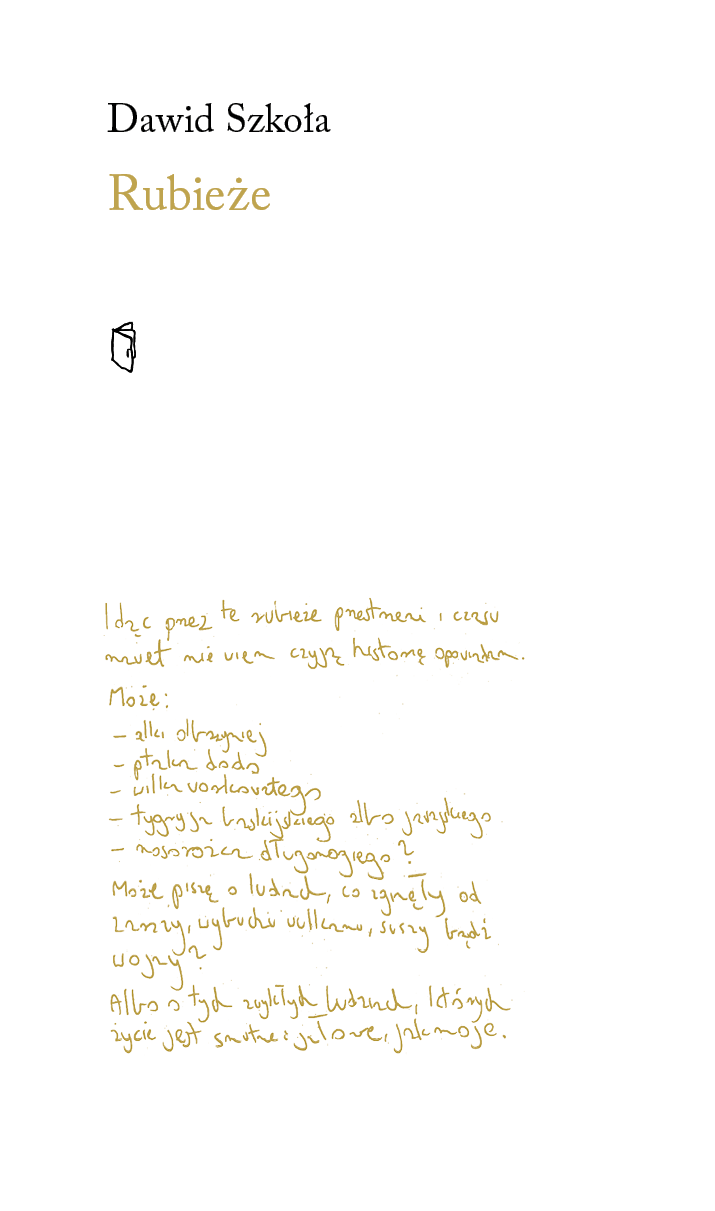 Dawid Szkoła
Rubieże
Idąc przez te rubieże przestrzeni i czasu
nawet nie wiem czyją historię opowiadam.
Może:
– alki olbrzymiej
– ptaka dodo
– wilka workowatego
– tygrysa kaspijskiego albo jawajskiego
– nosorożca długonogiego?
Może piszę o ludach, co zginęły od
zarazy, wybuchu wulkanu, suszy bądź
wojny?
Albo o tych zwykłych ludziach, których
życie jest smutne i jałowe, jak moje.